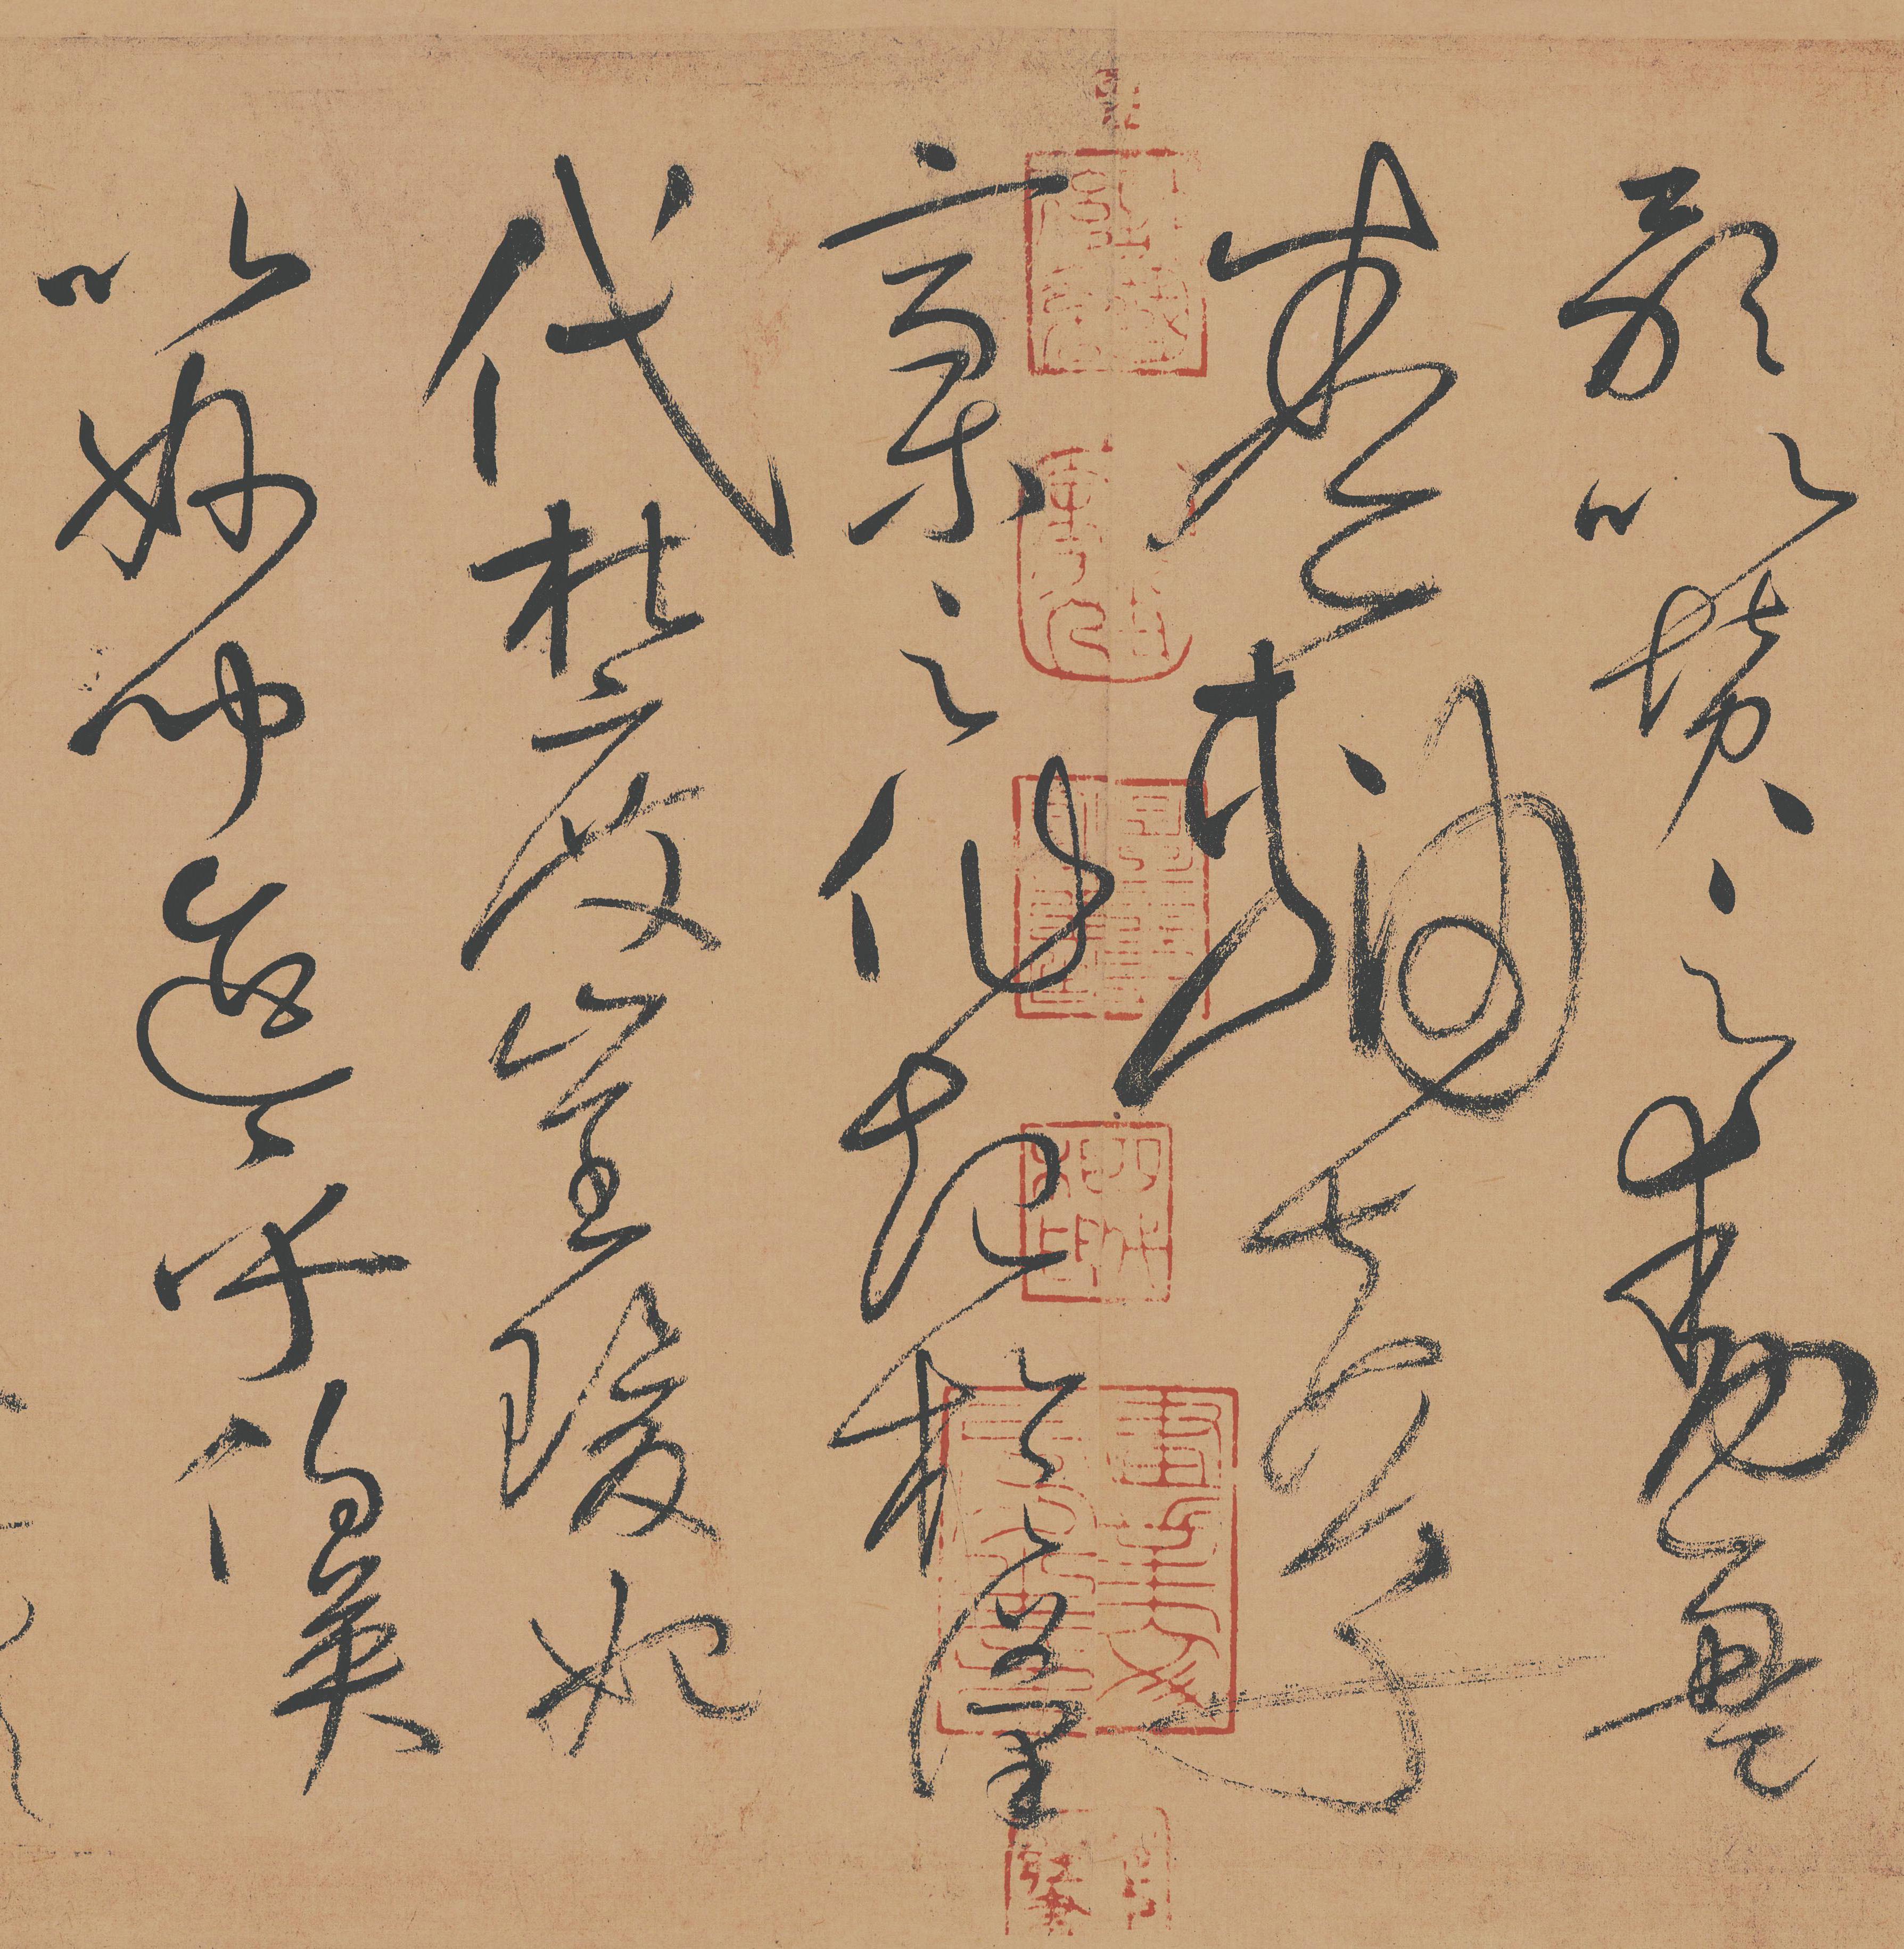 歌以贊之動盈
卷軸夫草
稾之作起於漢
代杜度崔瑗始
以妙聞迨乎伯英